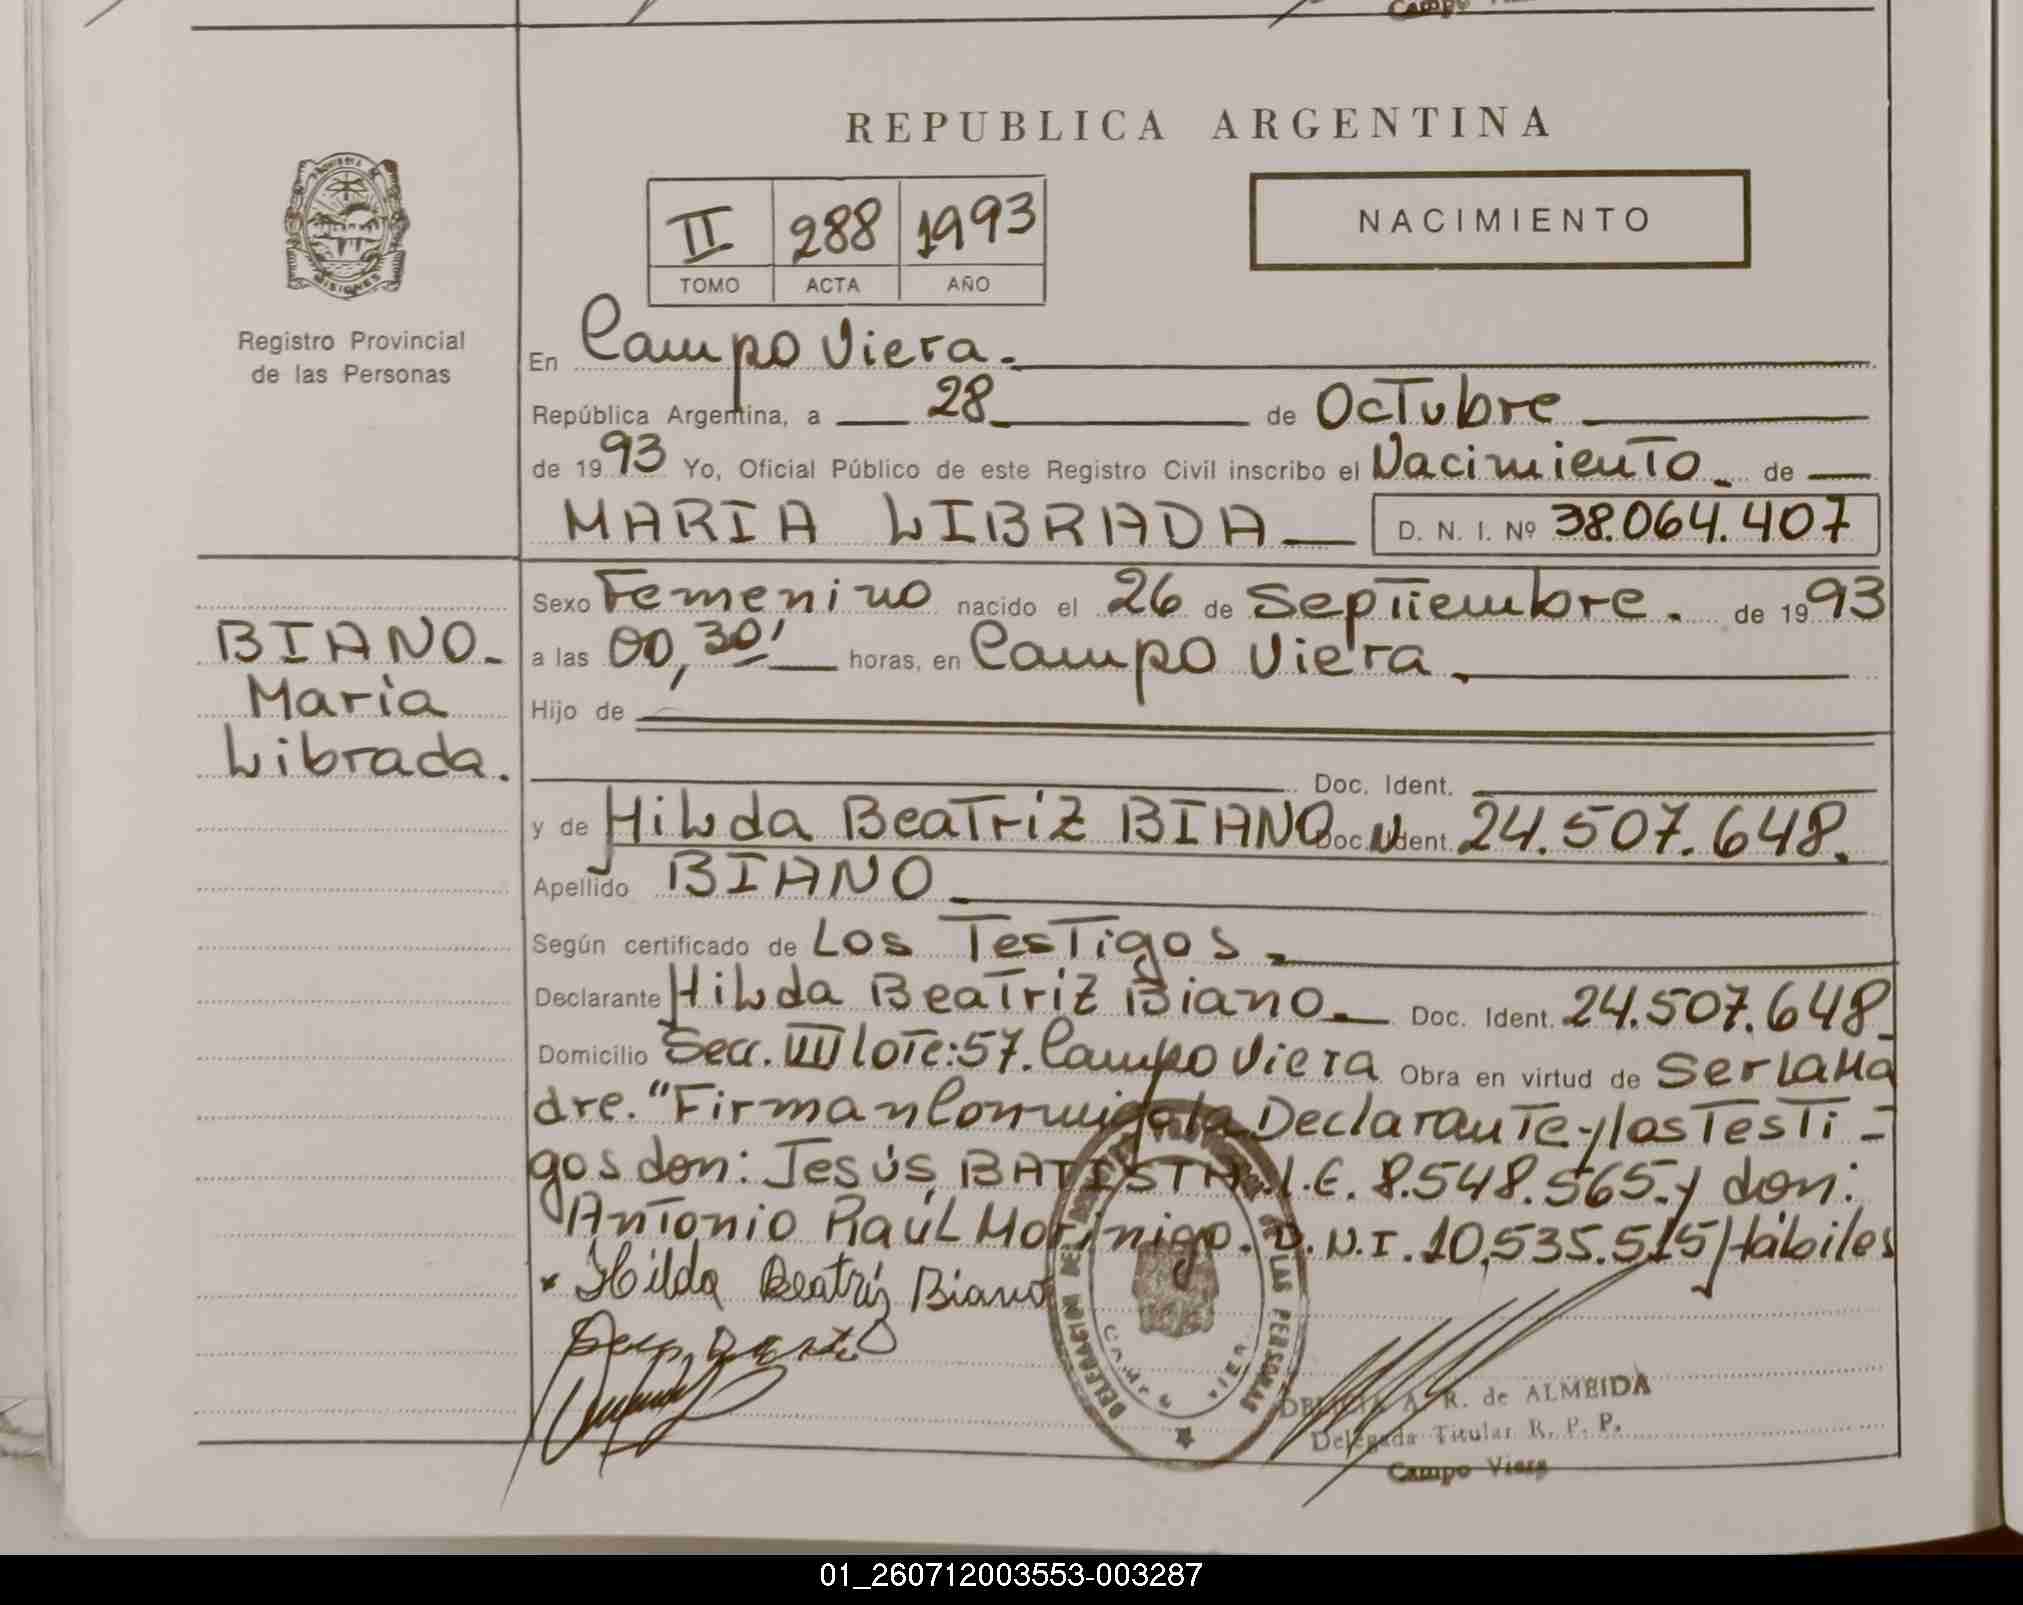 REPUBLICA ARGENTINA
NACIMIENTO
II 288 1993
TOMO ACTA AÑO
Registro Provincial
de las Personas
MISIONES
En Campo Viera.
República Argentina, a 28 de Octubre
de 1993 Yo, Oficial Público de este Registro Civil inscribo el Nacimiento de
MARIA LIBRADA D. N. I. Nº 38.064.407
BIANO.
Maria
Librada.
Sexo Femenino nacido el 26 de Septiembre. de 1993
a las 00,30' horas, en Campo Viera.
Hijo de
Doc. Ident.
y de Hilda Beatriz BIANO Doc. Ident. 24.507.648.
Apellido BIANO
Según certificado de Los Testigos.
Declarante Hilda Beatriz Biano. Doc. Ident. 24.507.648
Domicilio Secc. VIII lote: 57. Campo Viera Obra en virtud de ser la Ma
dre. "Firman Conmigo la Declarante y los Testi-
gos don: Jesús BATISTA. L.E. 8.548.565. y don:
Antonio Raúl Morínigo. D.N.I. 10,535.515 Hábiles
Hilda Beatriz Biano
DELEGACION DE LAS PERSONAS
CAMPO VIERA
DELICIA A. R. de ALMEIDA
Delegada Titular R. P. P.
Campo Viera
01_260712003553-003287